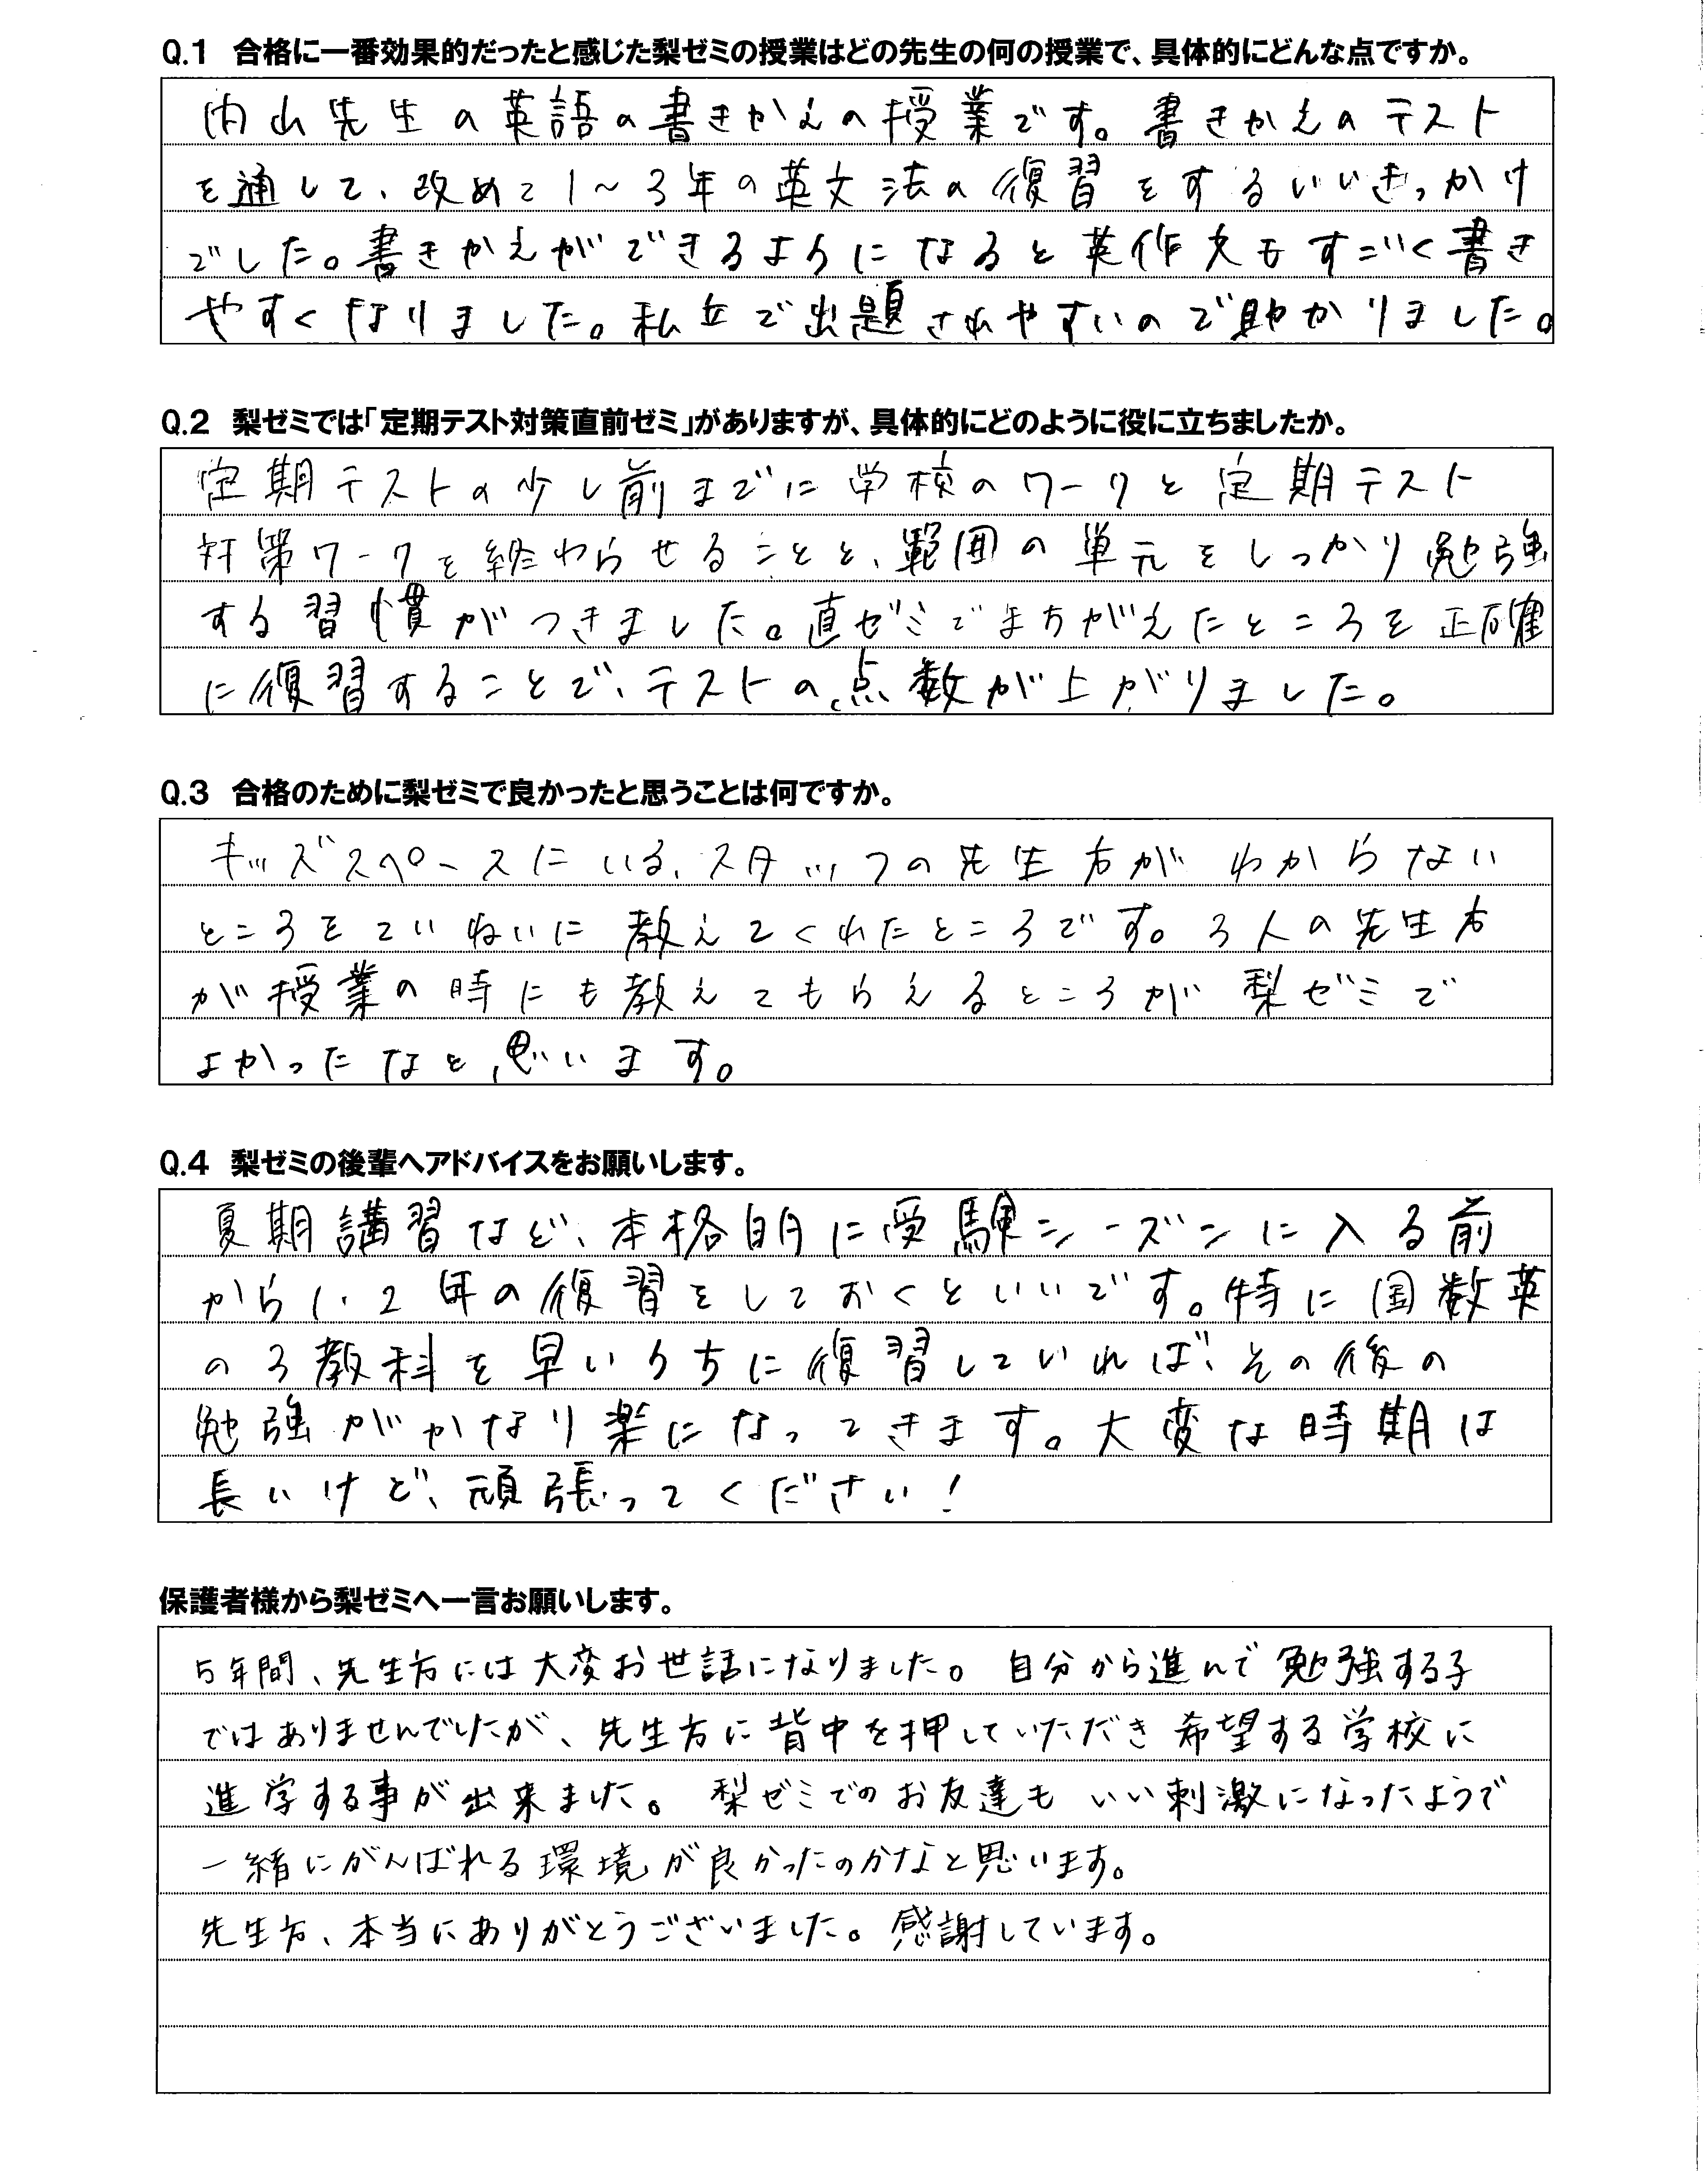 Q.1 合格に一番効果的だったと感じた梨ゼミの授業はどの先生の何の授業で、具体的にどんな点ですか。
内山先生の英語の書きかえの授業です。書きかえのテスト
を通して、改めて1～3年の英文法の復習をするいいきっかけ
でした。書きかえができるようになると英作文もすごく書き
やすくなりました。私立で出題されやすいので助かりました。
Q.2 梨ゼミでは「定期テスト対策直前ゼミ」がありますが、具体的にどのように役に立ちましたか。
定期テストの少し前までに学校のワークと定期テスト
対策ワークを終わらせることと、範囲の単元をしっかり勉強
する習慣がつきました。直ゼミでまちがえたところを正確
に復習することで、テストの点数が上がりました。
Q.3 合格のために梨ゼミで良かったと思うことは何ですか。
キッズスペースにいる、スタッフの先生方がわからない
ところをていねいに教えてくれたところです。3人の先生方
が授業の時にも教えてもらえるところが梨ゼミで
よかったなと思います。
Q.4 梨ゼミの後輩へアドバイスをお願いします。
夏期講習など、本格的に受験シーズンに入る前
から1・2年の復習をしておくといいです。特に国数英
の3教科を早いうちに復習していれば、その後の
勉強がかなり楽になってきます。大変な時期は
長いけど、頑張ってください!
保護者様から梨ゼミへ一言お願いします。
5年間、先生方には大変お世話になりました。自分から進んで勉強する子
ではありませんでしたが、先生方に背中を押していただき希望する学校に
進学する事が出来ました。梨ゼミでのお友達もいい刺激になったようで
一緒にがんばれる環境が良かったのかなと思います。
先生方、本当にありがとうございました。感謝しています。